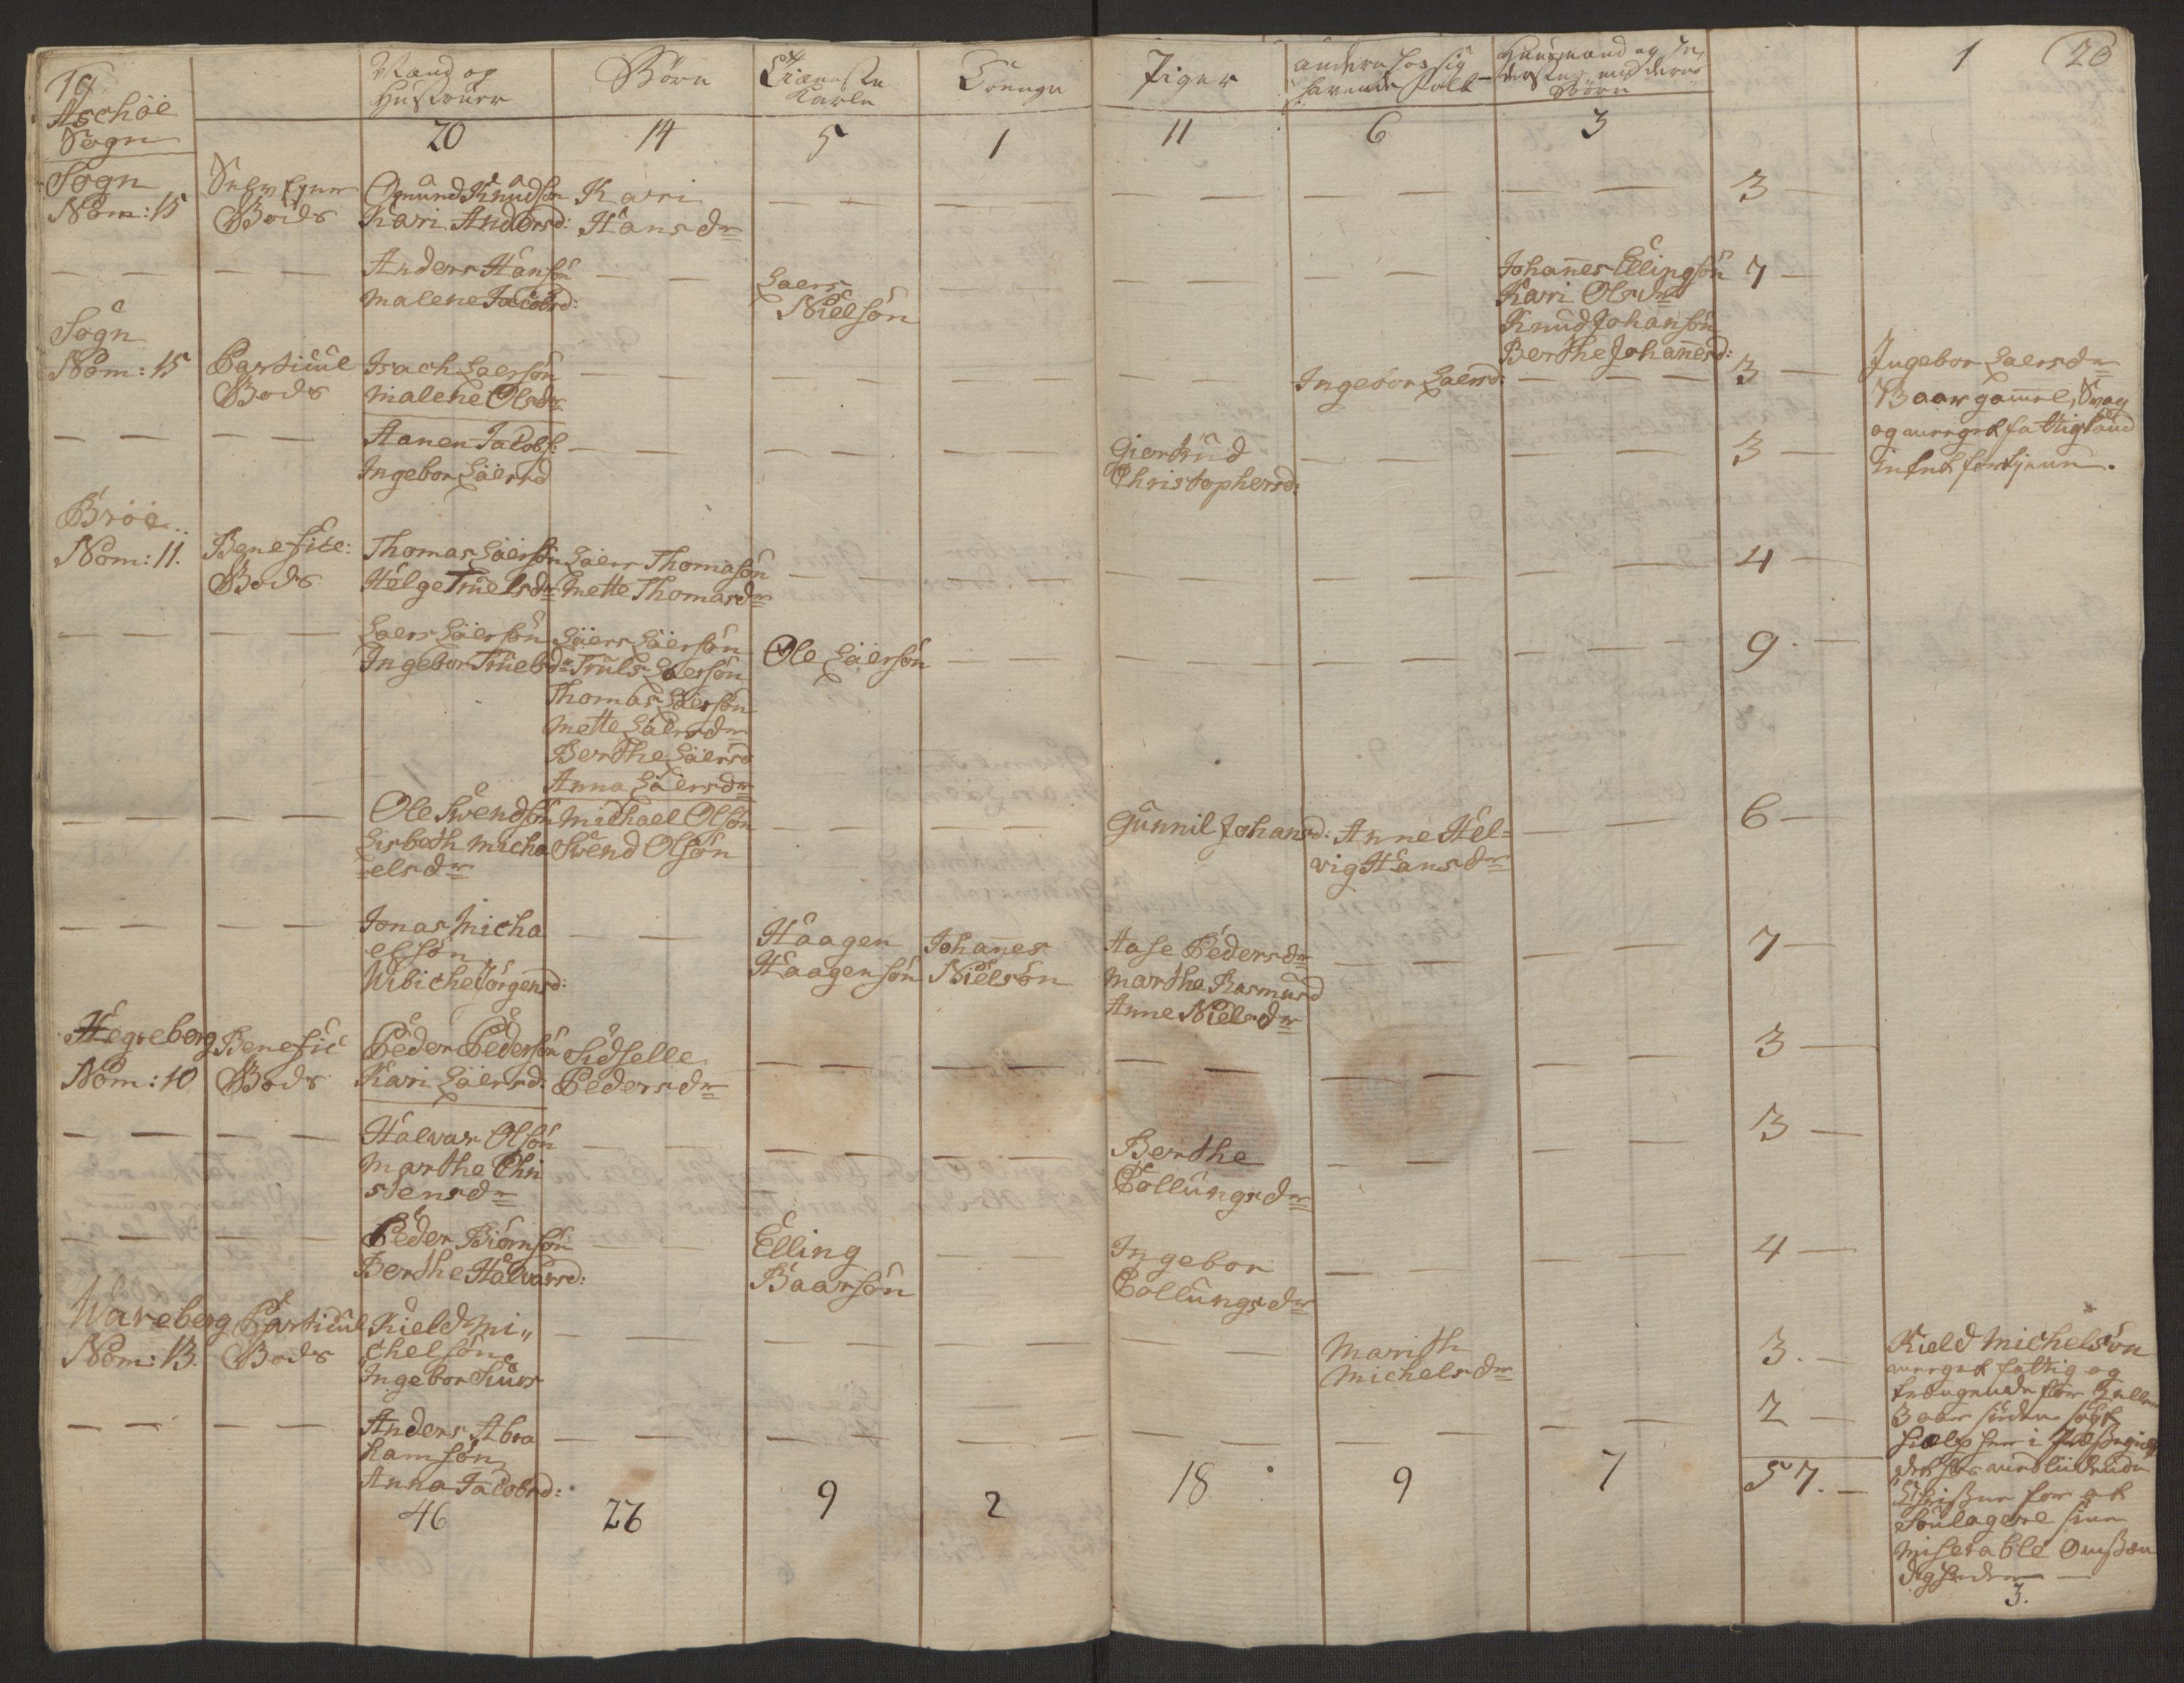 19
Aschöe
Sogn
Mand og
Hustruer
Börn
Tiæneste
Karle
Drenge
Piger
andere hos sig
havende folk
Huusmænd og In
derster med deres
Börn
1
20
20
14
5
1
11
6
3
Sogn
Nom: 15
Selv Eyer
Bods
Omund Knudsön
Kari Andersd:
Kari
Hansdr
— — — — — — — — 3 —
— — — — Anders Hansön
Malene Jacobsd:
— — Laers
Nielsön
— — — — — — Johanes Ellingsön
Kari Olsdr
Knud Johansön
Berthe Johanesd:
7 —
Sogn
Nom: 15
Particul
Bods
Isach Laersön
Malene Olsdr
— — — — — — — — Ingebor Laersd: — — 3 —
Ingebor Laersd
Baar gamel, Svag
og meeget fattig
intet fortjene.
— — — — Aanen Jacobs:
Ingebor Laersd
— — — — — — Giertrud
Christophersd:
— — — — 3 —
Bröe
Nom: 11.
Benefice:
Bods
Thomas Laersön
Helge Truelsdr
Laers Thomasön
Mette Thomasdr
— — — — — — — — — — 4 —
— — — — Laers Laersön
Ingebor Truelsdr
Laers Laersön
Truls Laersön
Thomas Laersön
Mette Laersdr
Berthe Laersd
Anna Laersdr
Ole Laersön
— — — — — — — — 9. —
— — — — Ole Svendsön
Lisbeth Micha
elsdr
Michael Olsön
Svend Olsön
— — — — Gunnil Johansd:
Anne Hel=
vig Hansdr
— — 6 —
— — — — Jonas Micha
elsön
Wibiche Jörgensd:
— — Haagen
Haagensön
Johanes
Nielsön
Aase Pedersdr
Marthe Rasmusd
Anne Nielsdr
— — — — 7 —
Hegreberg
Nom: 10
Benefic
Bods
Peder Pedersön
Kari Laersd:
Sidselle
Pedersdr
— — — — — — — — — — 3 —
— — — — Halvar Olsön
Marthe Chri
stensdr
— — — — — — Berthe
Tollungsdr
— — — — 3 —
— — — — Peder Biörnsön
Berthe Halvarsd:
— — Elling
Baarsön
— — Ingebor
Tollungsdr
— — — — 4 —
Wareberg
Nom: 13.
Particul
Bods
Kield Mi„
chelsön
Ingebor Siurs
— — — — — — — — Marith
Michelsdr
3. —
Kield Michelsön
meeget fattig og
trængende
3 aar siden
hielp her i
for at
Soulagere sine
miserable Omstæn
digheder —
3.
— — — — Anders Abra
hamsön
Anna Jacobsd:
— — — — — — — — — — — — 2 —
46
26
9
2
18
9
7
57. —